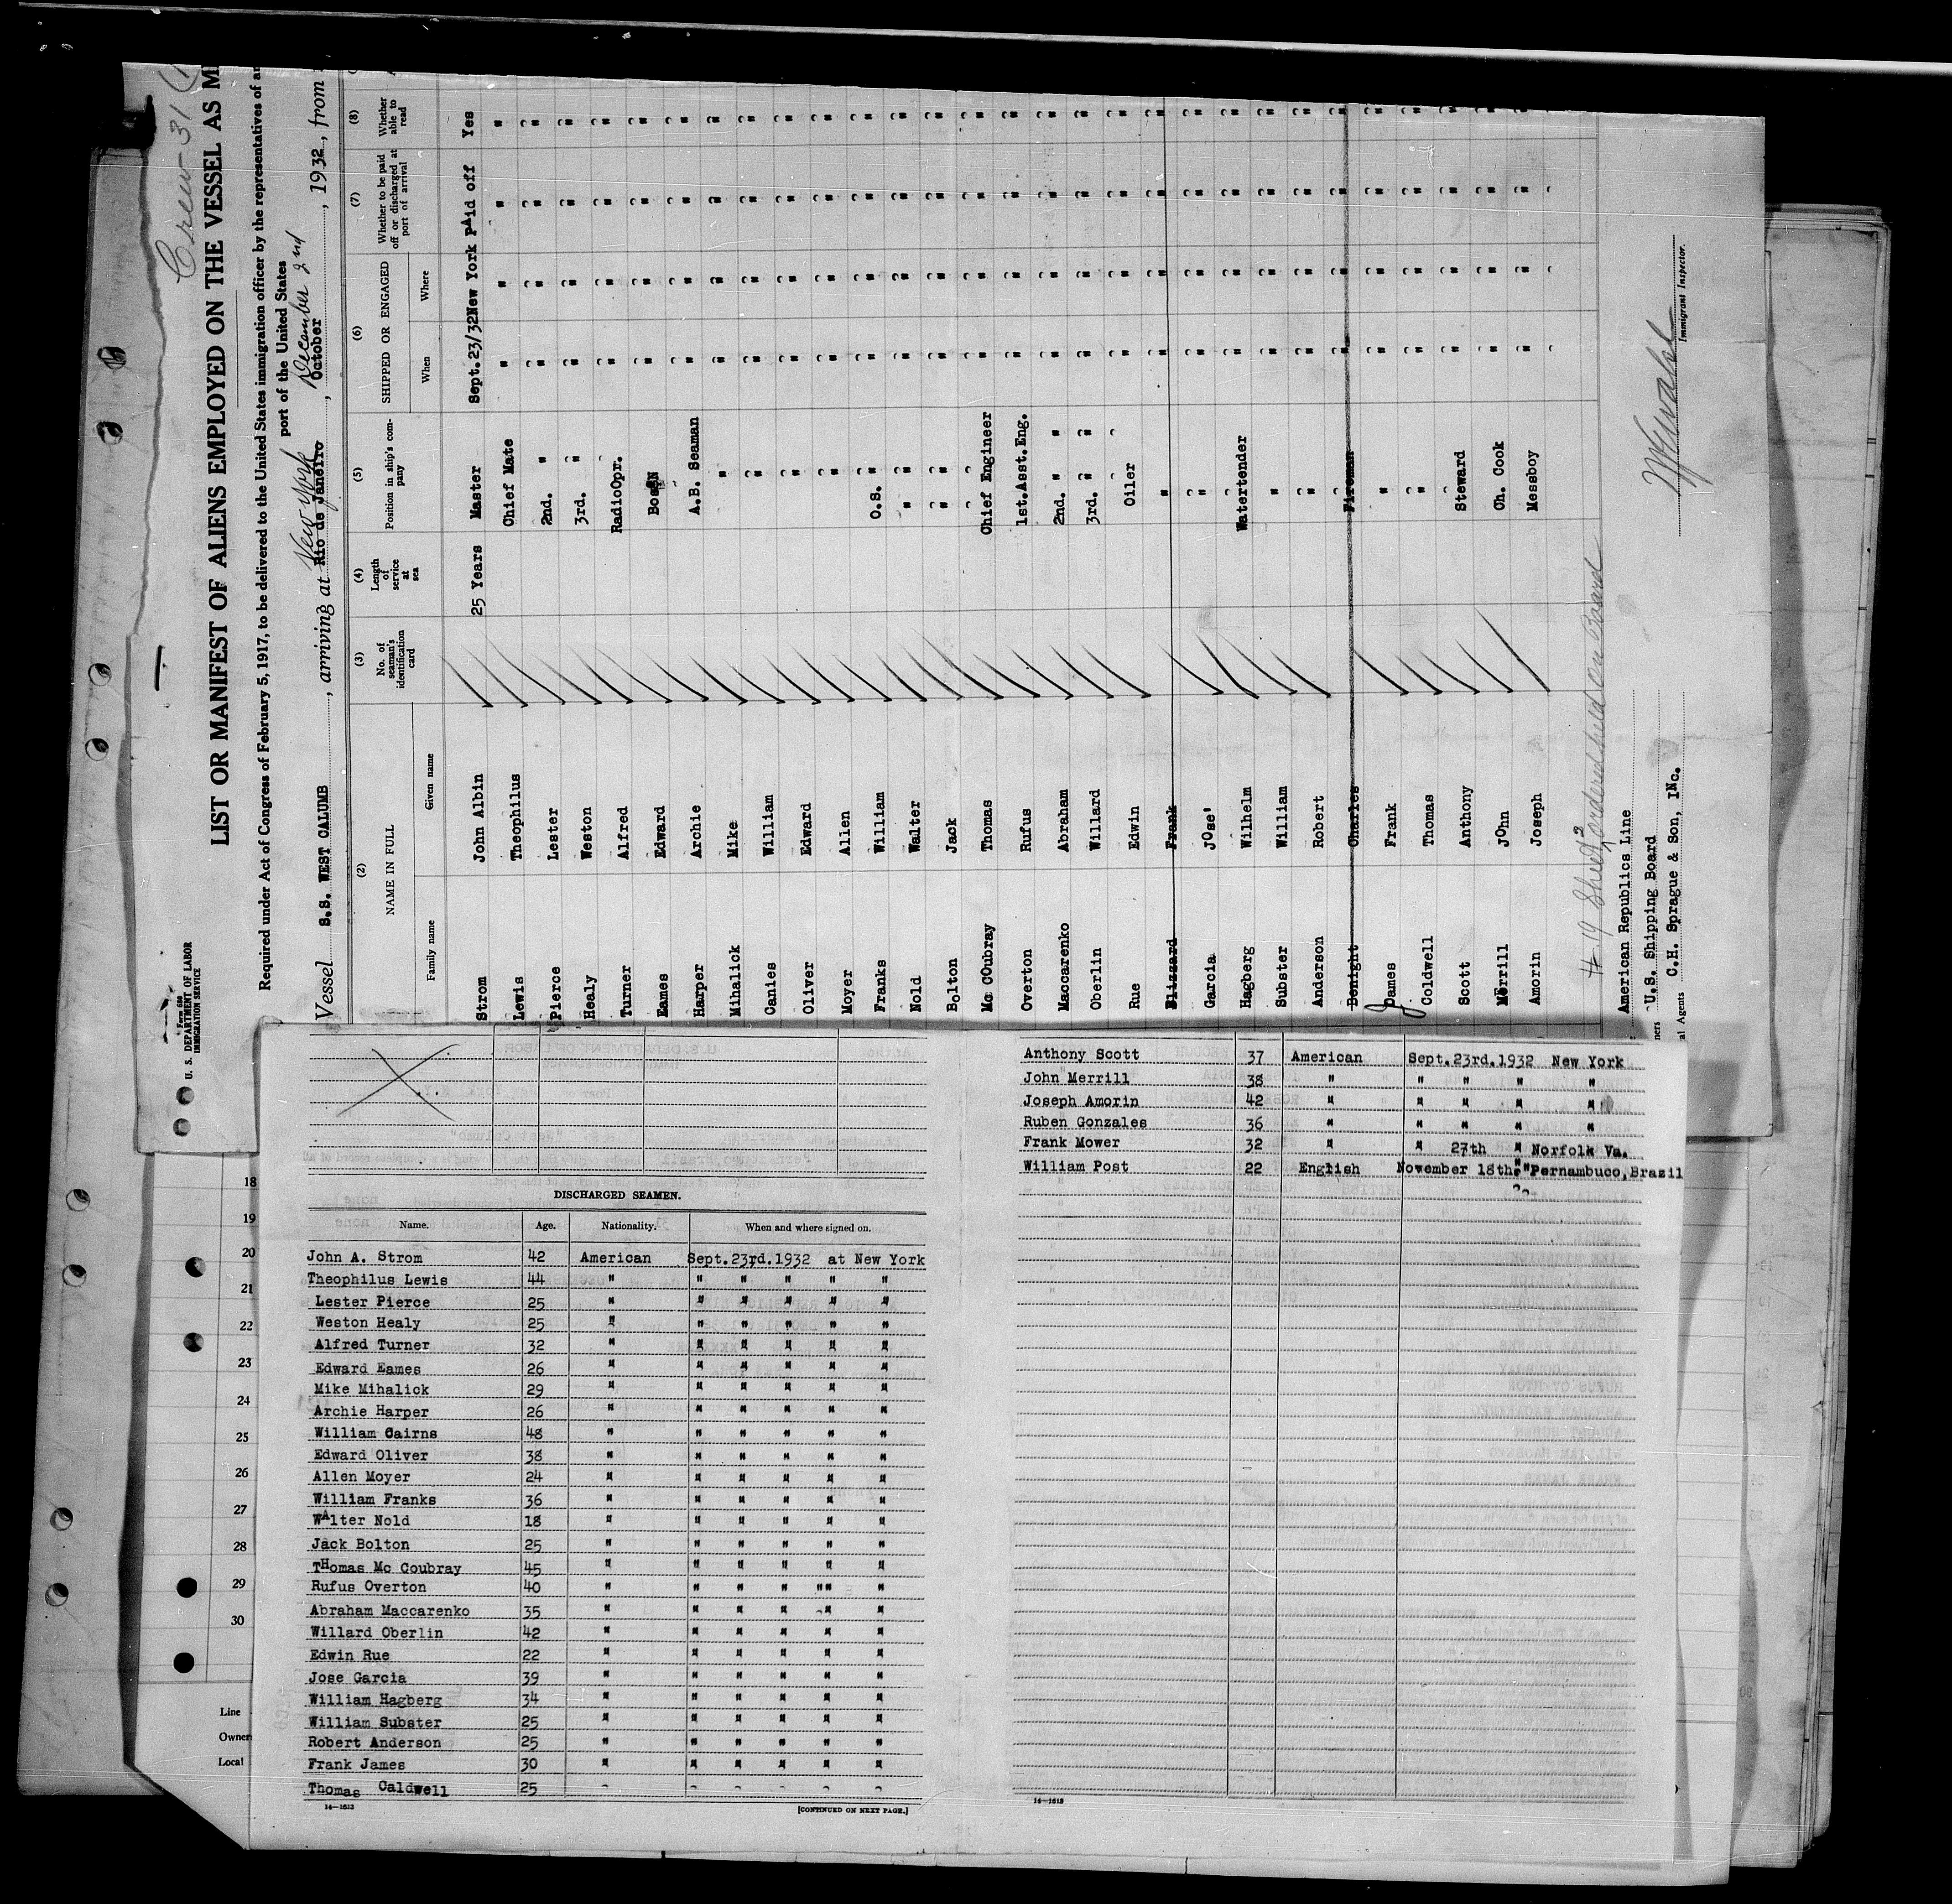 Crew-31
Form 680
U. S. DEPARTMENT OF LABOR
IMMIGRATION SERVICE
LIST OR MANIFEST OF ALIENS EMPLOYED ON THE VESSEL AS
Required under Act of Congress of February 5, 1917, to be delivered to the United States immigration officer by the representatives of
port of the United States
New York December 2nd
Vessel S.S. WEST CALUMB, arriving at Rio de Janeiro, October, 1932, from
(2) (3) (4) (5) (6) (7) (8)
NAME IN FULL
Family name Given name
No. of seaman's identification card
Length of service at sea
Position in ship's company
SHIPPED OR ENGAGED
When Where
Whether to be paid off or discharged at port of arrival
Whether able to read
Strom John Albin 25 Years Master Sept.23/32New York PAid off Yes
Lewis Theophilus Chief Mate " " " "
Pierce Lester 2nd. " " " " "
Healy Weston 3rd. " " " " "
Turner Alfred RadioOpr. " " " "
Eames Edward BosN " " " "
Harper Archie A.B. Seaman " " " "
Mihalick Mike " " " " "
Canies William " " " " "
Oliver Edward " " " " "
Moyer Allen " " " " "
Franks William O.S. " " " " "
Nold Walter " " " " " "
Bolton Jack " " " " " "
Mc COubray Thomas Chief Engineer " " " "
Overton Rufus 1st.Asst.Eng. " " " "
Maccarenko Abraham 2nd. " " " " " "
Oberlin Willard 3rd. " " " " " "
Rue Edwin Oiler " " " "
Blizzard Frank " " " " "
Garcia JOse' " " " " "
Hagberg Wilhelm Watertender " " " "
Subster William " " " " "
Anderson Robert " " " " "
Denright Charles Fireman " " " "
James Frank " " " " "
Coldwell Thomas " " " " "
Scott Anthony Steward " " " "
Merrill JOhn Ch. Cook " " " "
Amorin Joseph Messboy " " " "
# 19 Sheet 2 ordered held on board
American Republics Line
U.S. Shipping Board
C.H. Sprague & Son, INc.
Immigrant Inspector.
18
19
20
21
22
23
24
25
26
27
28
29
30
Line
Owner
Local
DISCHARGED SEAMEN.
Name. Age. Nationality. When and where signed on.
John A. Strom 42 American Sept.23rd.1932 at New York
Theophilus Lewis 44 " " " " " "
Lester Pierce 25 " " " " " "
Weston Healy 25 " " " " " "
Alfred Turner 32 " " " " " "
Edward Eames 26 " " " " " "
Mike Mihalick 29 " " " " " "
Archie Harper 26 " " " " " "
William Cairns 48 " " " " " "
Edward Oliver 38 " " " " " "
Allen Moyer 24 " " " " " "
William Franks 36 " " " " " "
WAlter Nold 18 " " " " " "
Jack Bolton 25 " " " " " "
THomas Mc Coubray 45 " " " " " "
Rufus Overton 40 " " " " "" "
Abraham Maccarenko 35 " " " " " "
Willard Oberlin 42 " " " " " "
Edwin Rue 22 " " " " " "
Jose Garcia 39 " " " " " "
William Hagberg 34 " " " " " "
William Subster 25 " " " " " "
Robert Anderson 25 " " " " " "
Frank James 30 " " " " " "
Thomas Caldwell 25 " " " " " "
14—1613 [CONTINUED ON NEXT PAGE.]
Anthony Scott 37 American Sept.23rd.1932 New York
John Merrill 38 " " " " "
Joseph Amorin 42 " " " " "
Ruben Gonzales 36 " " " " "
Frank Mower 32 " " 27th " Norfolk Va.
William Post 22 English November 18th, "Pernambuco,Brazil
14—1613